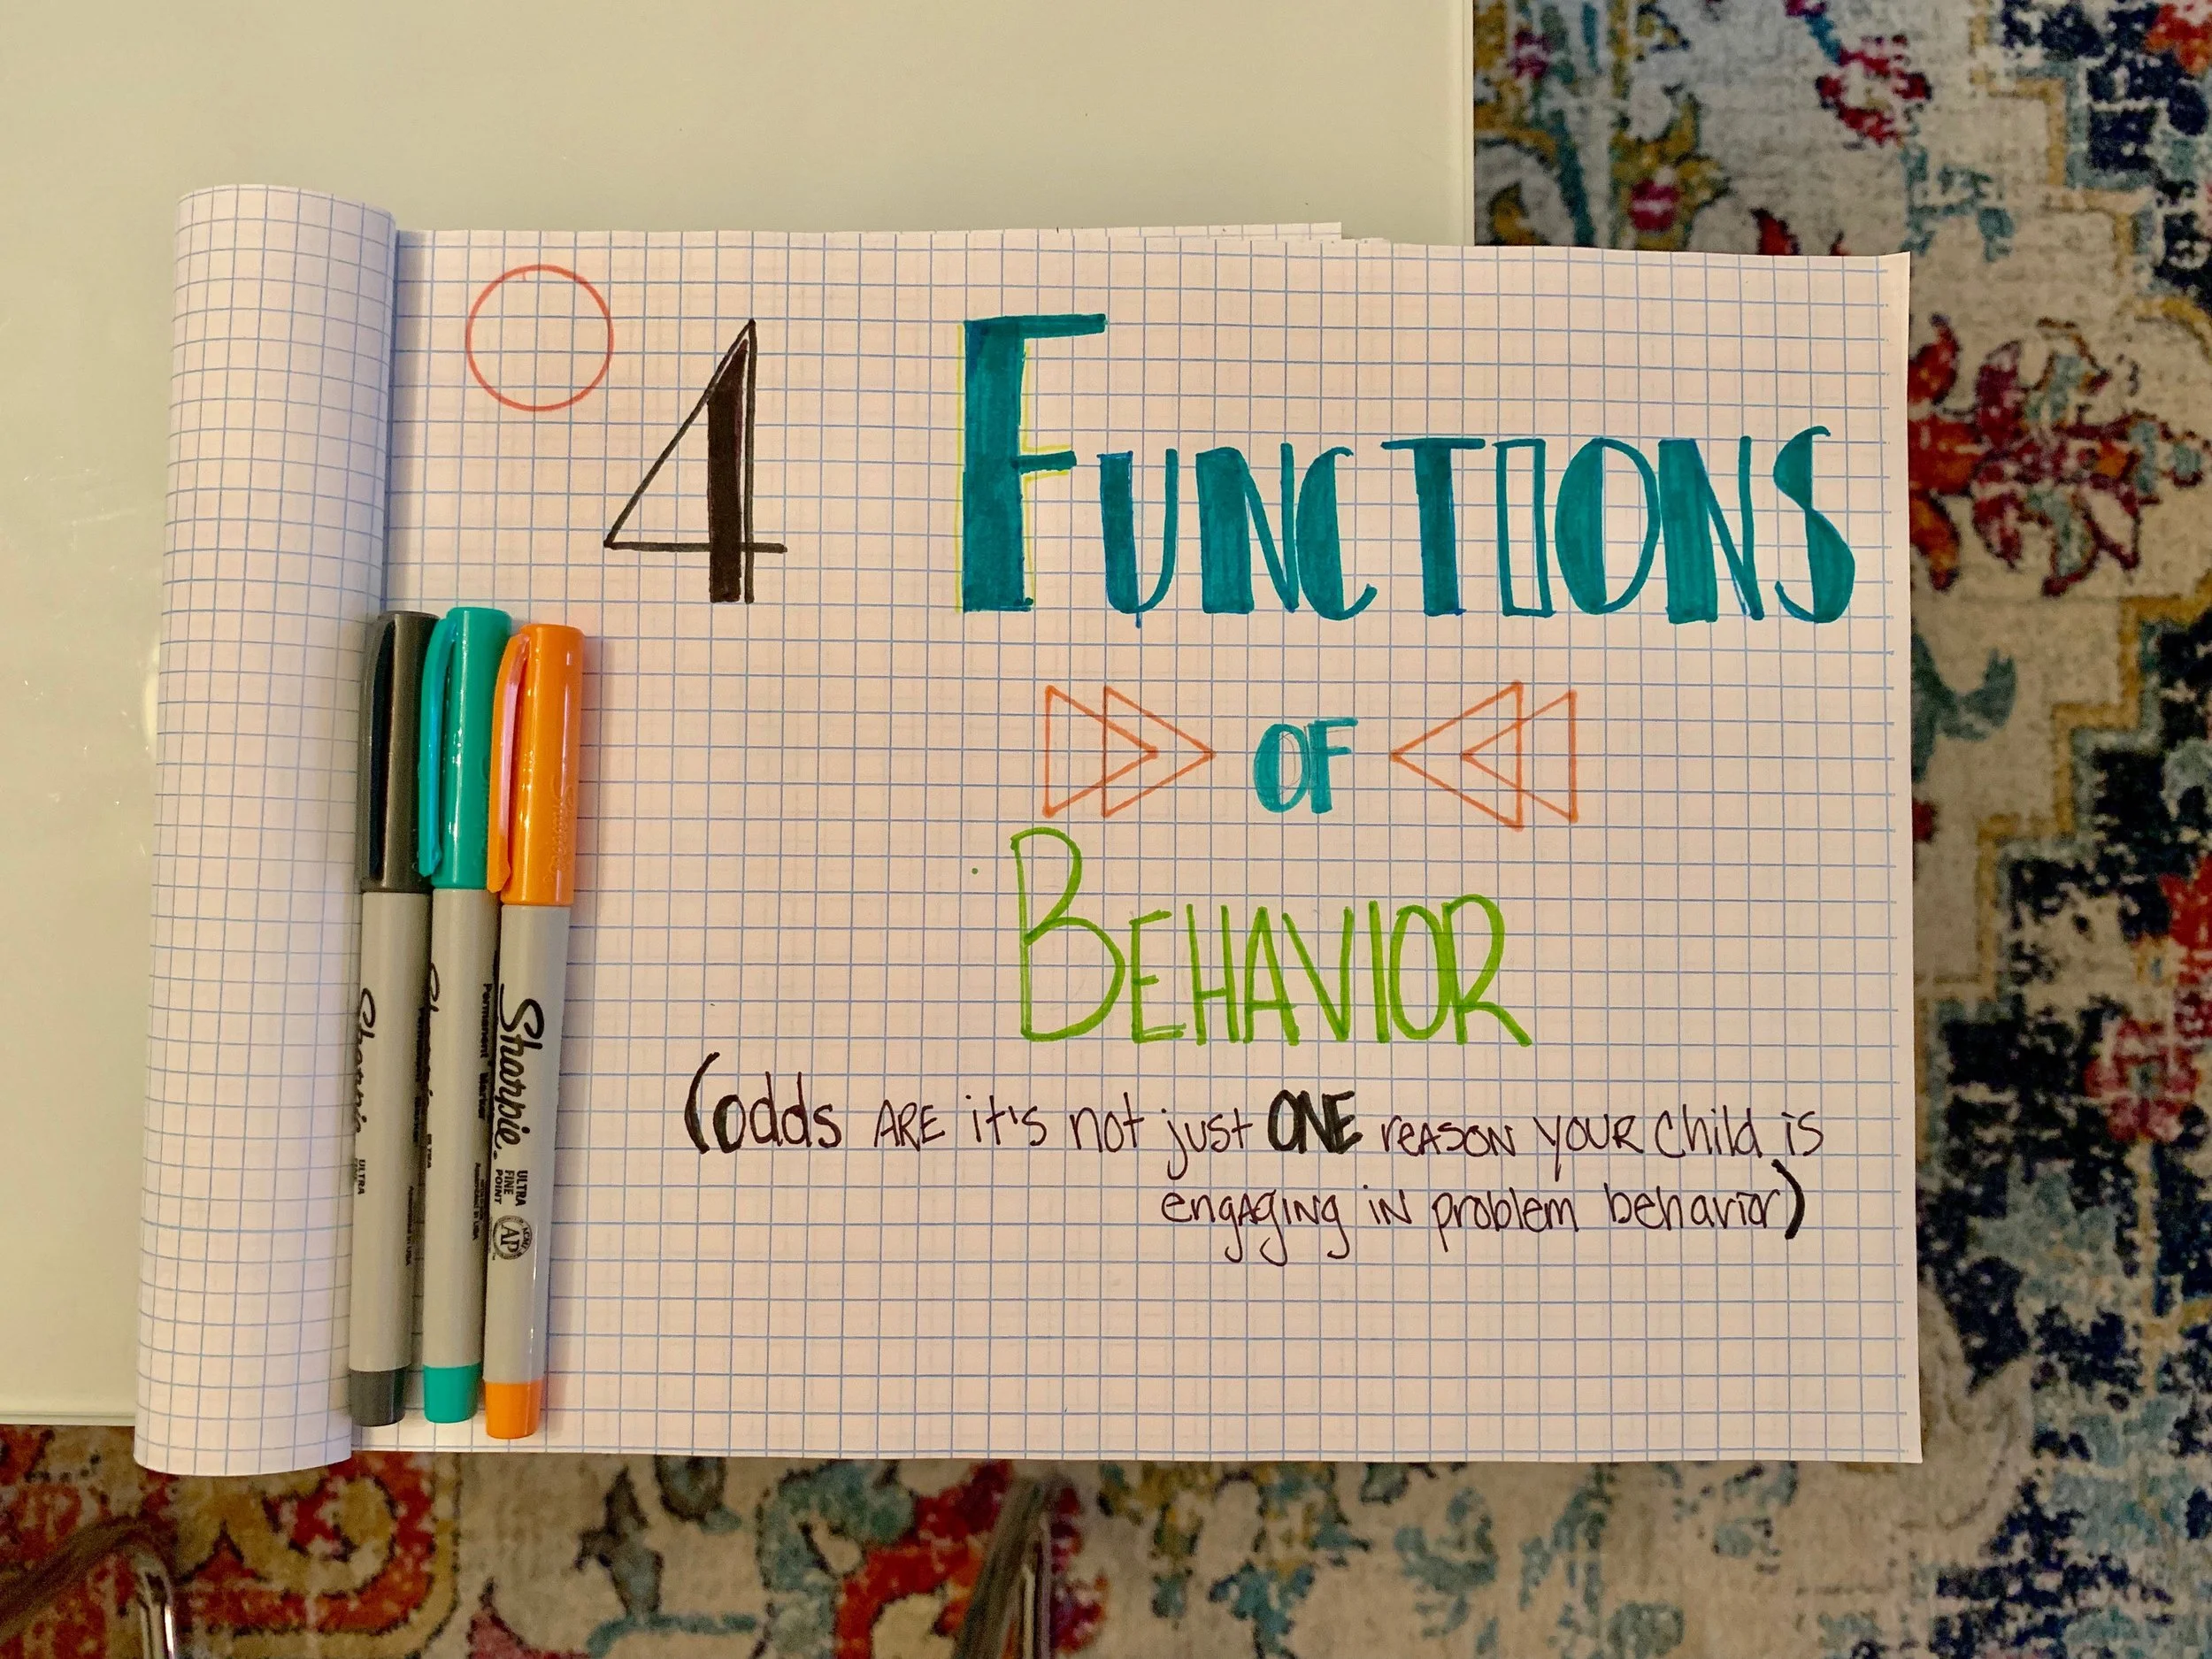 4 FUNCTIONS
OF
BEHAVIOR
(odds ARE it's not just ONE reASON YOUR child is
engAgINg iN problem behavior)
Sharpie.
Permanent Marker
ULTRA
FINE
POINT
AP
Sharpie
ULTRA